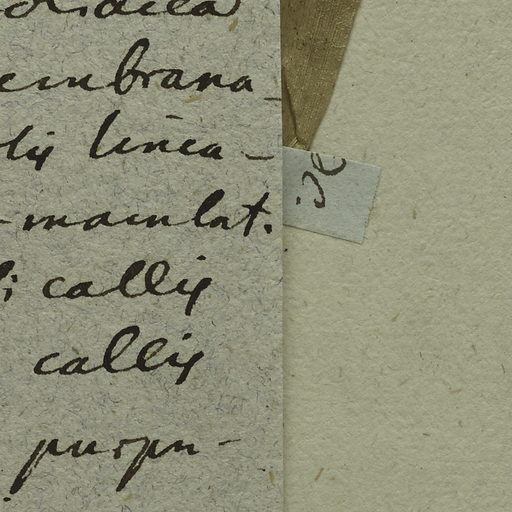 embrana-
lis linea-
-maculat.
i callis
callis
purpu-